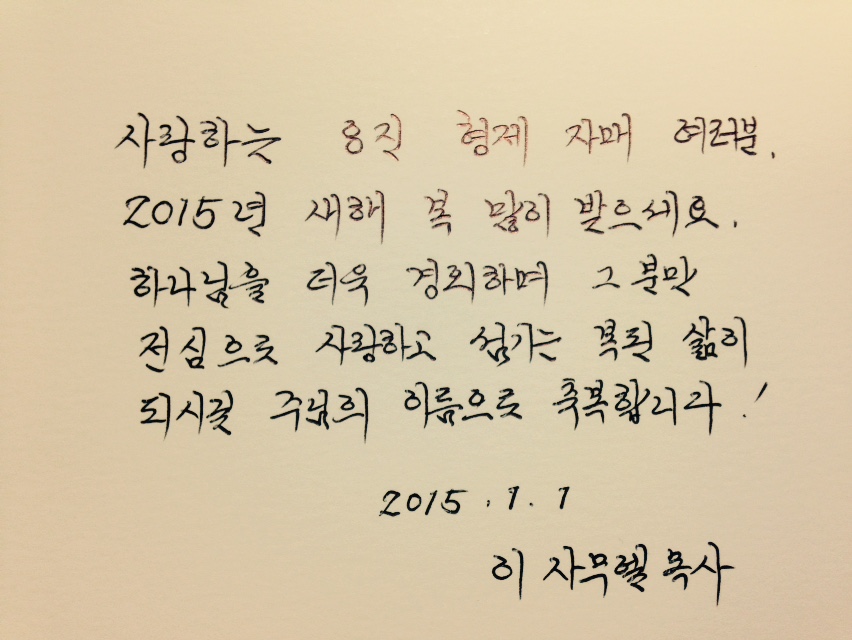 사랑하는 웅진 형제 자매 여러분.
2015년 새해 복 많이 받으세요.
하나님을 더욱 경외하며 그분만
전심으로 사랑하고 섬기는 복된 삶이
되시길 주님의 이름으로 축복합니다!
2015. 1. 1
이 사무엘 목사